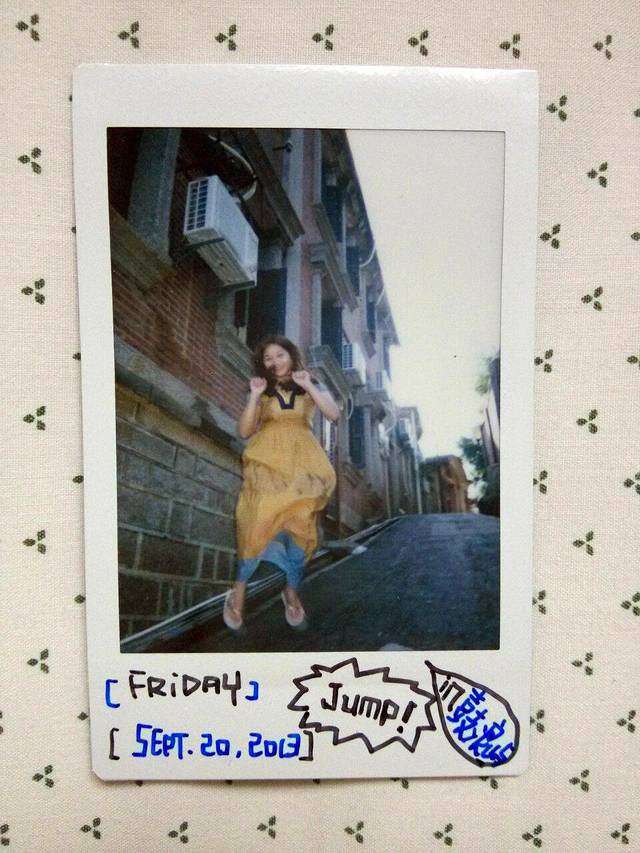 [FRiDAY]
[SEPT. 20, 2013]
Jump!
in
鼓浪屿